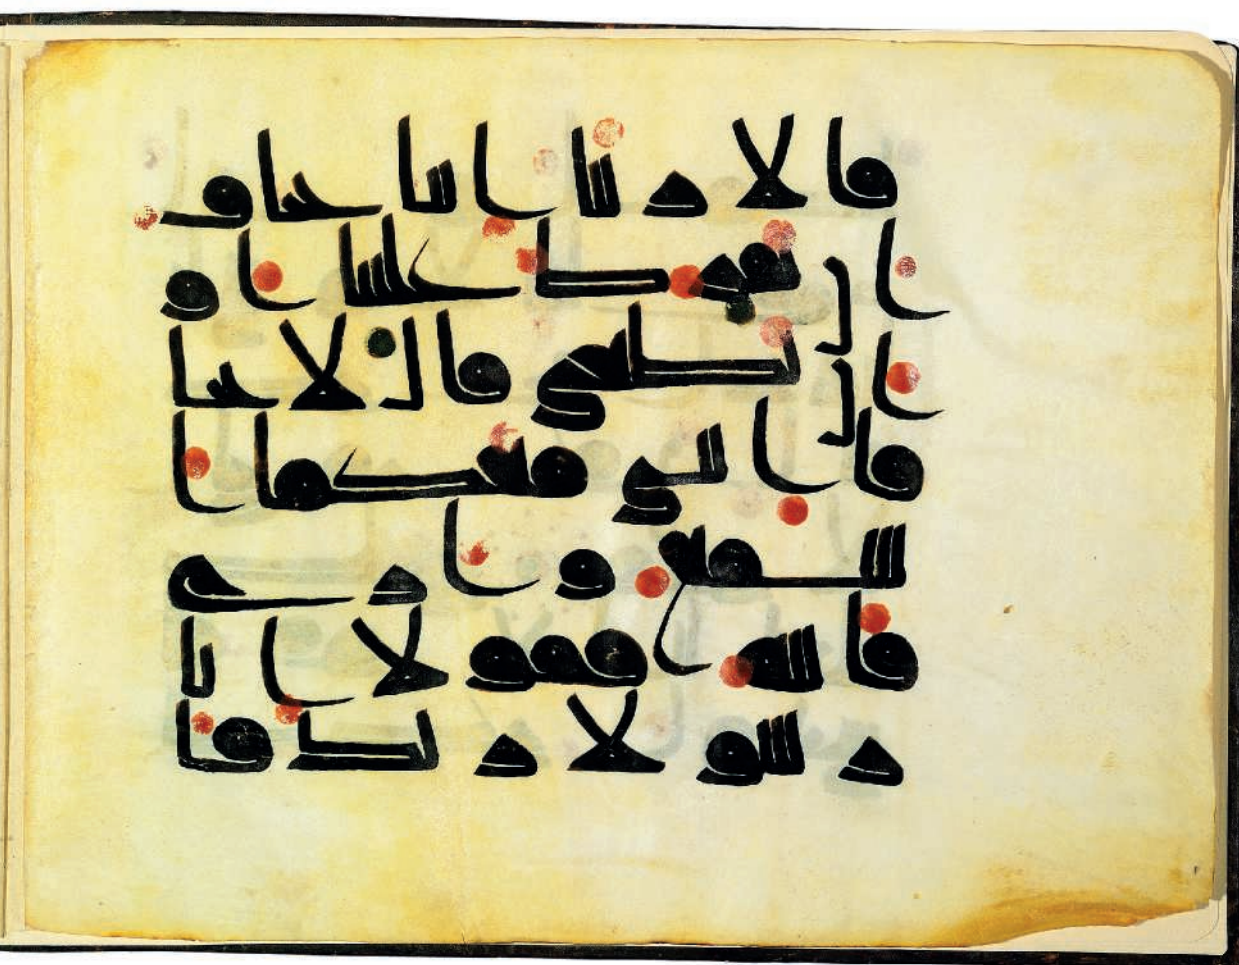 قالا ربنا اننا نخاف
ان يفرط علينا او
ان يطغى قال لا تخا
فا اننى معكما ا
سمع وارى
فاتيه فقولا انا
رسولا ربك فا